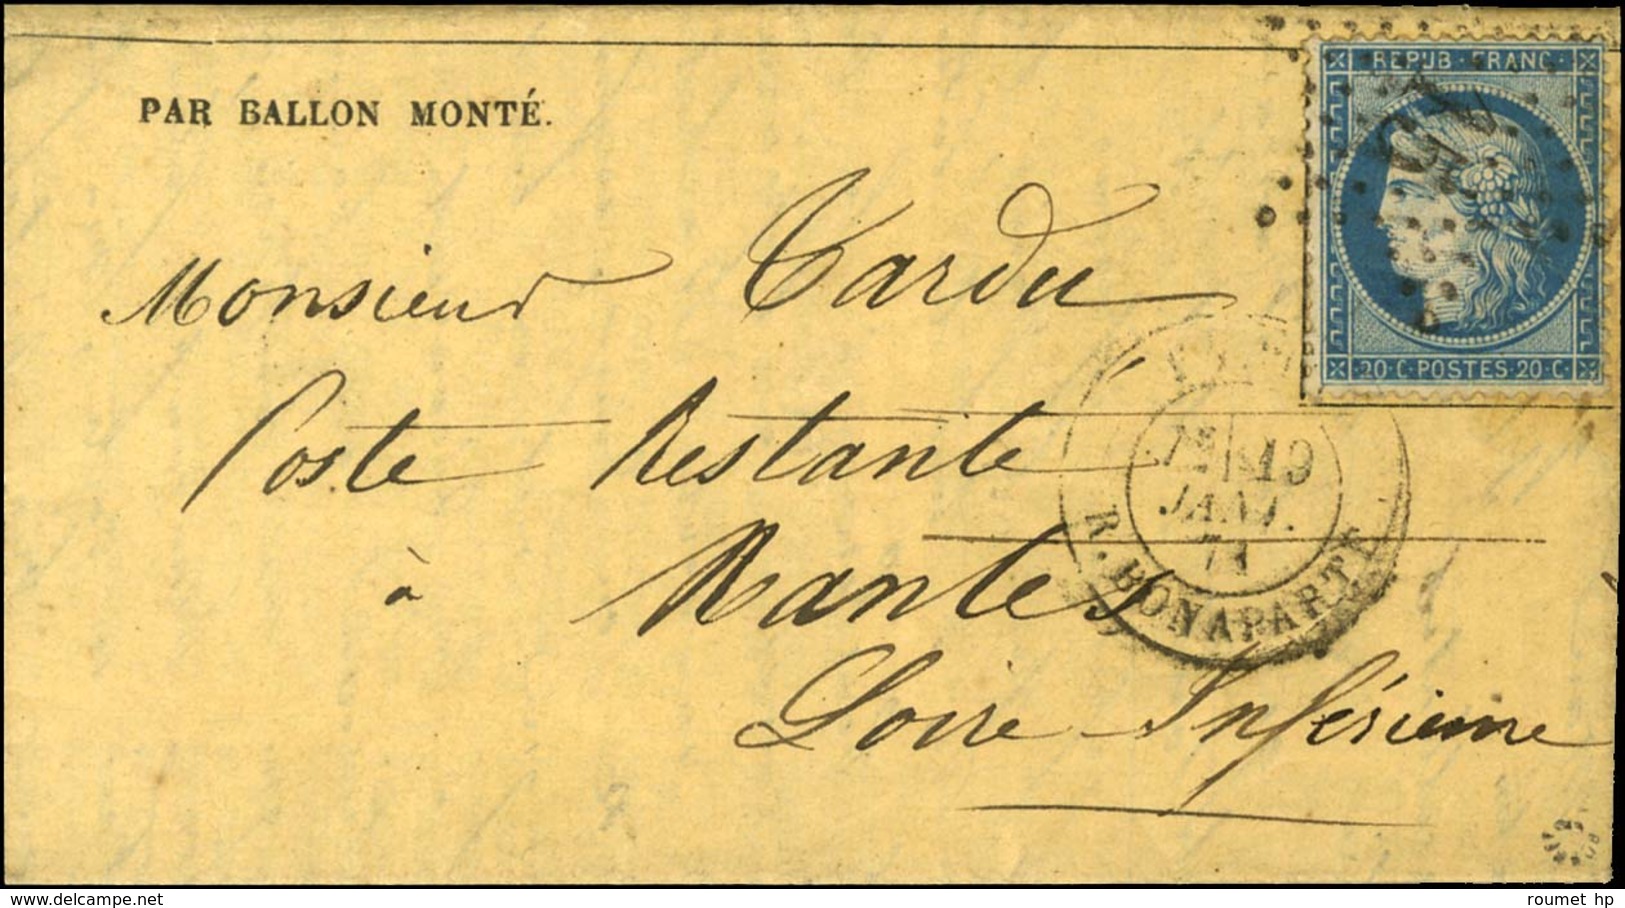 REPUB · FRANC ·
PAR BALLON MONTÉ.
Monsieur Tardu
20 · C · POSTES · 20 · C ·
Poste Restante
19
JANV.
71
R. BONAPARTE
à Nantes
Loire Inférieure
© roumet hp